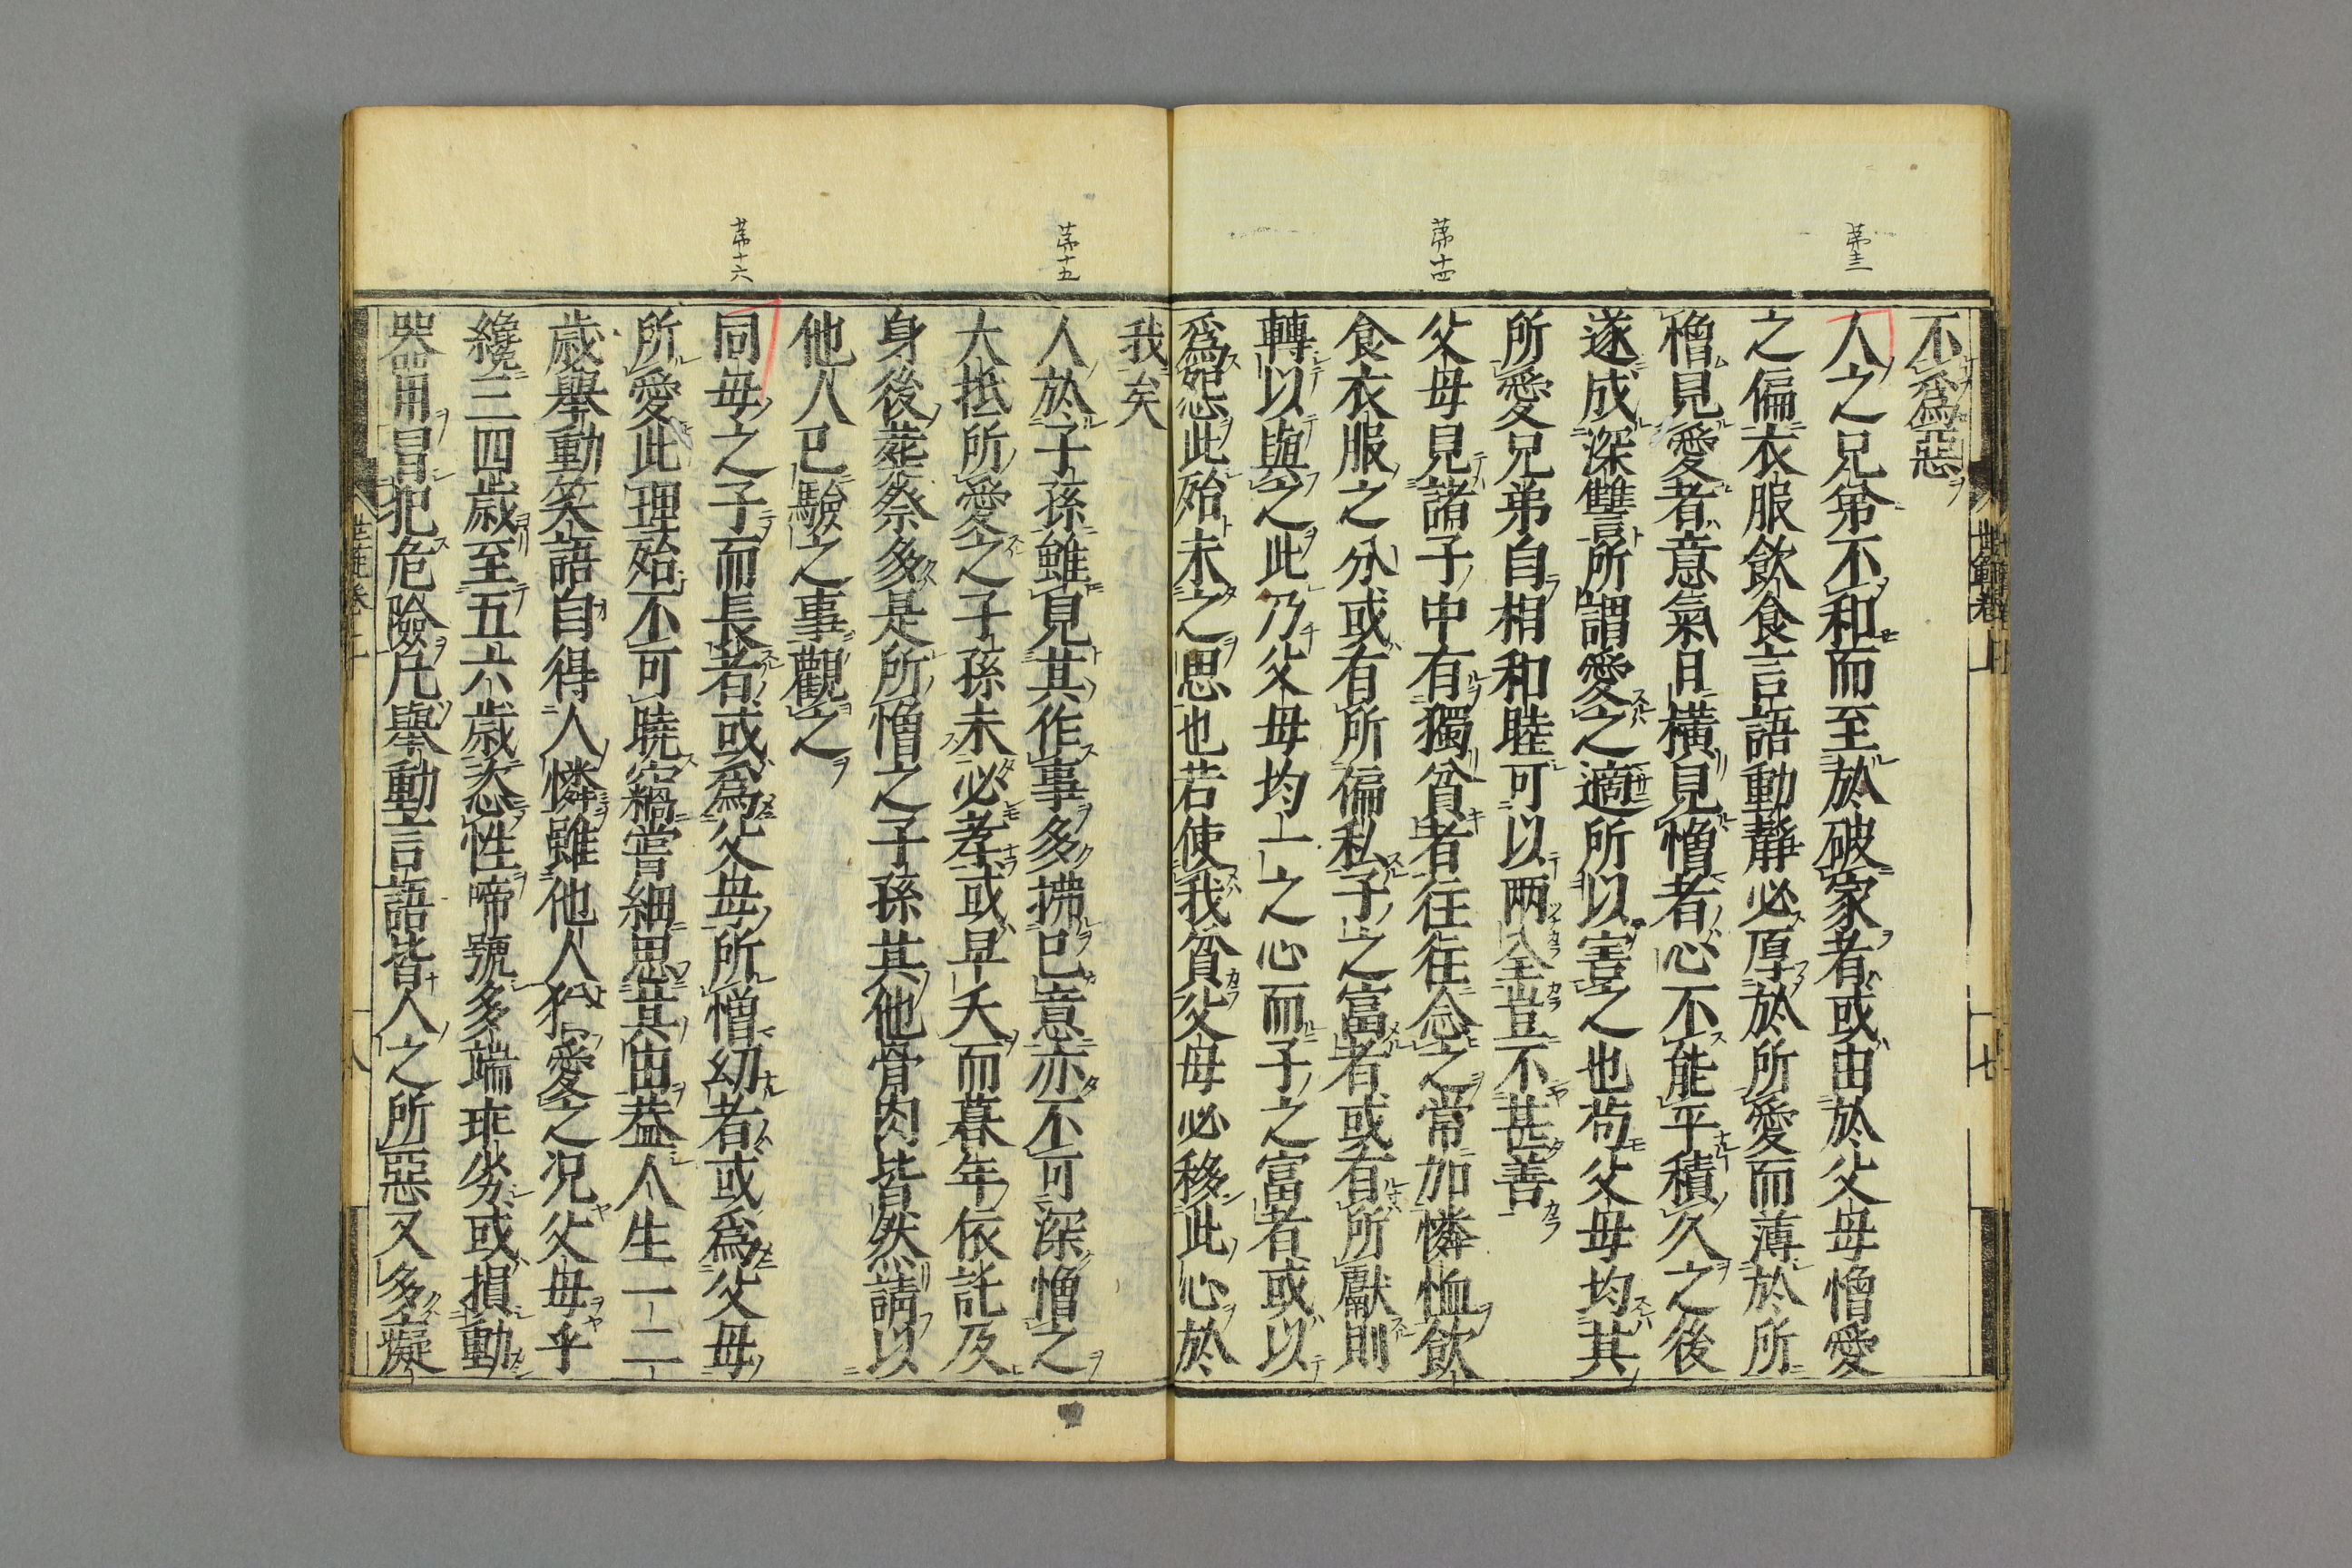 不為惡
第十三
人之兄弟不和而至於破家者或由於父母憎愛
之偏衣服飲食言語動靜必厚於所愛而薄於所
憎見愛者意氣日橫見憎者心不能平積久之後
遂成深讐所謂愛之適所以害之也苟父母均其
所愛兄弟自相和睦可以两全豈不甚善
第十四
父母見諸子中有獨貧者往往念之常加憐恤飲
食衣服之分或有所偏私子之富者或有所獻則
轉以與之此乃父母均一之心而子之富者或以
爲怨此殆未之思也若使我貧父母必移此心於
世範卷上
七
我矣
第十五
人於子孫雖見其作事多拂己意亦不可深憎之
大抵所愛之子孫未必孝或早夭而暮年依託及
身後葬祭多是所憎之子孫其他骨肉皆然請以
他人已驗之事觀之
第十六
同母之子而長者或爲父母所憎幼者或爲父母
所愛此理殆不可曉竊嘗細思其由葢人生一二
歲舉動笑語自得人憐雖他人犹愛之况父母乎
纔三四歲至五六歲恣性啼號多端乖劣或損動
器用冒犯危險凡舉動言語皆人之所惡又多癡